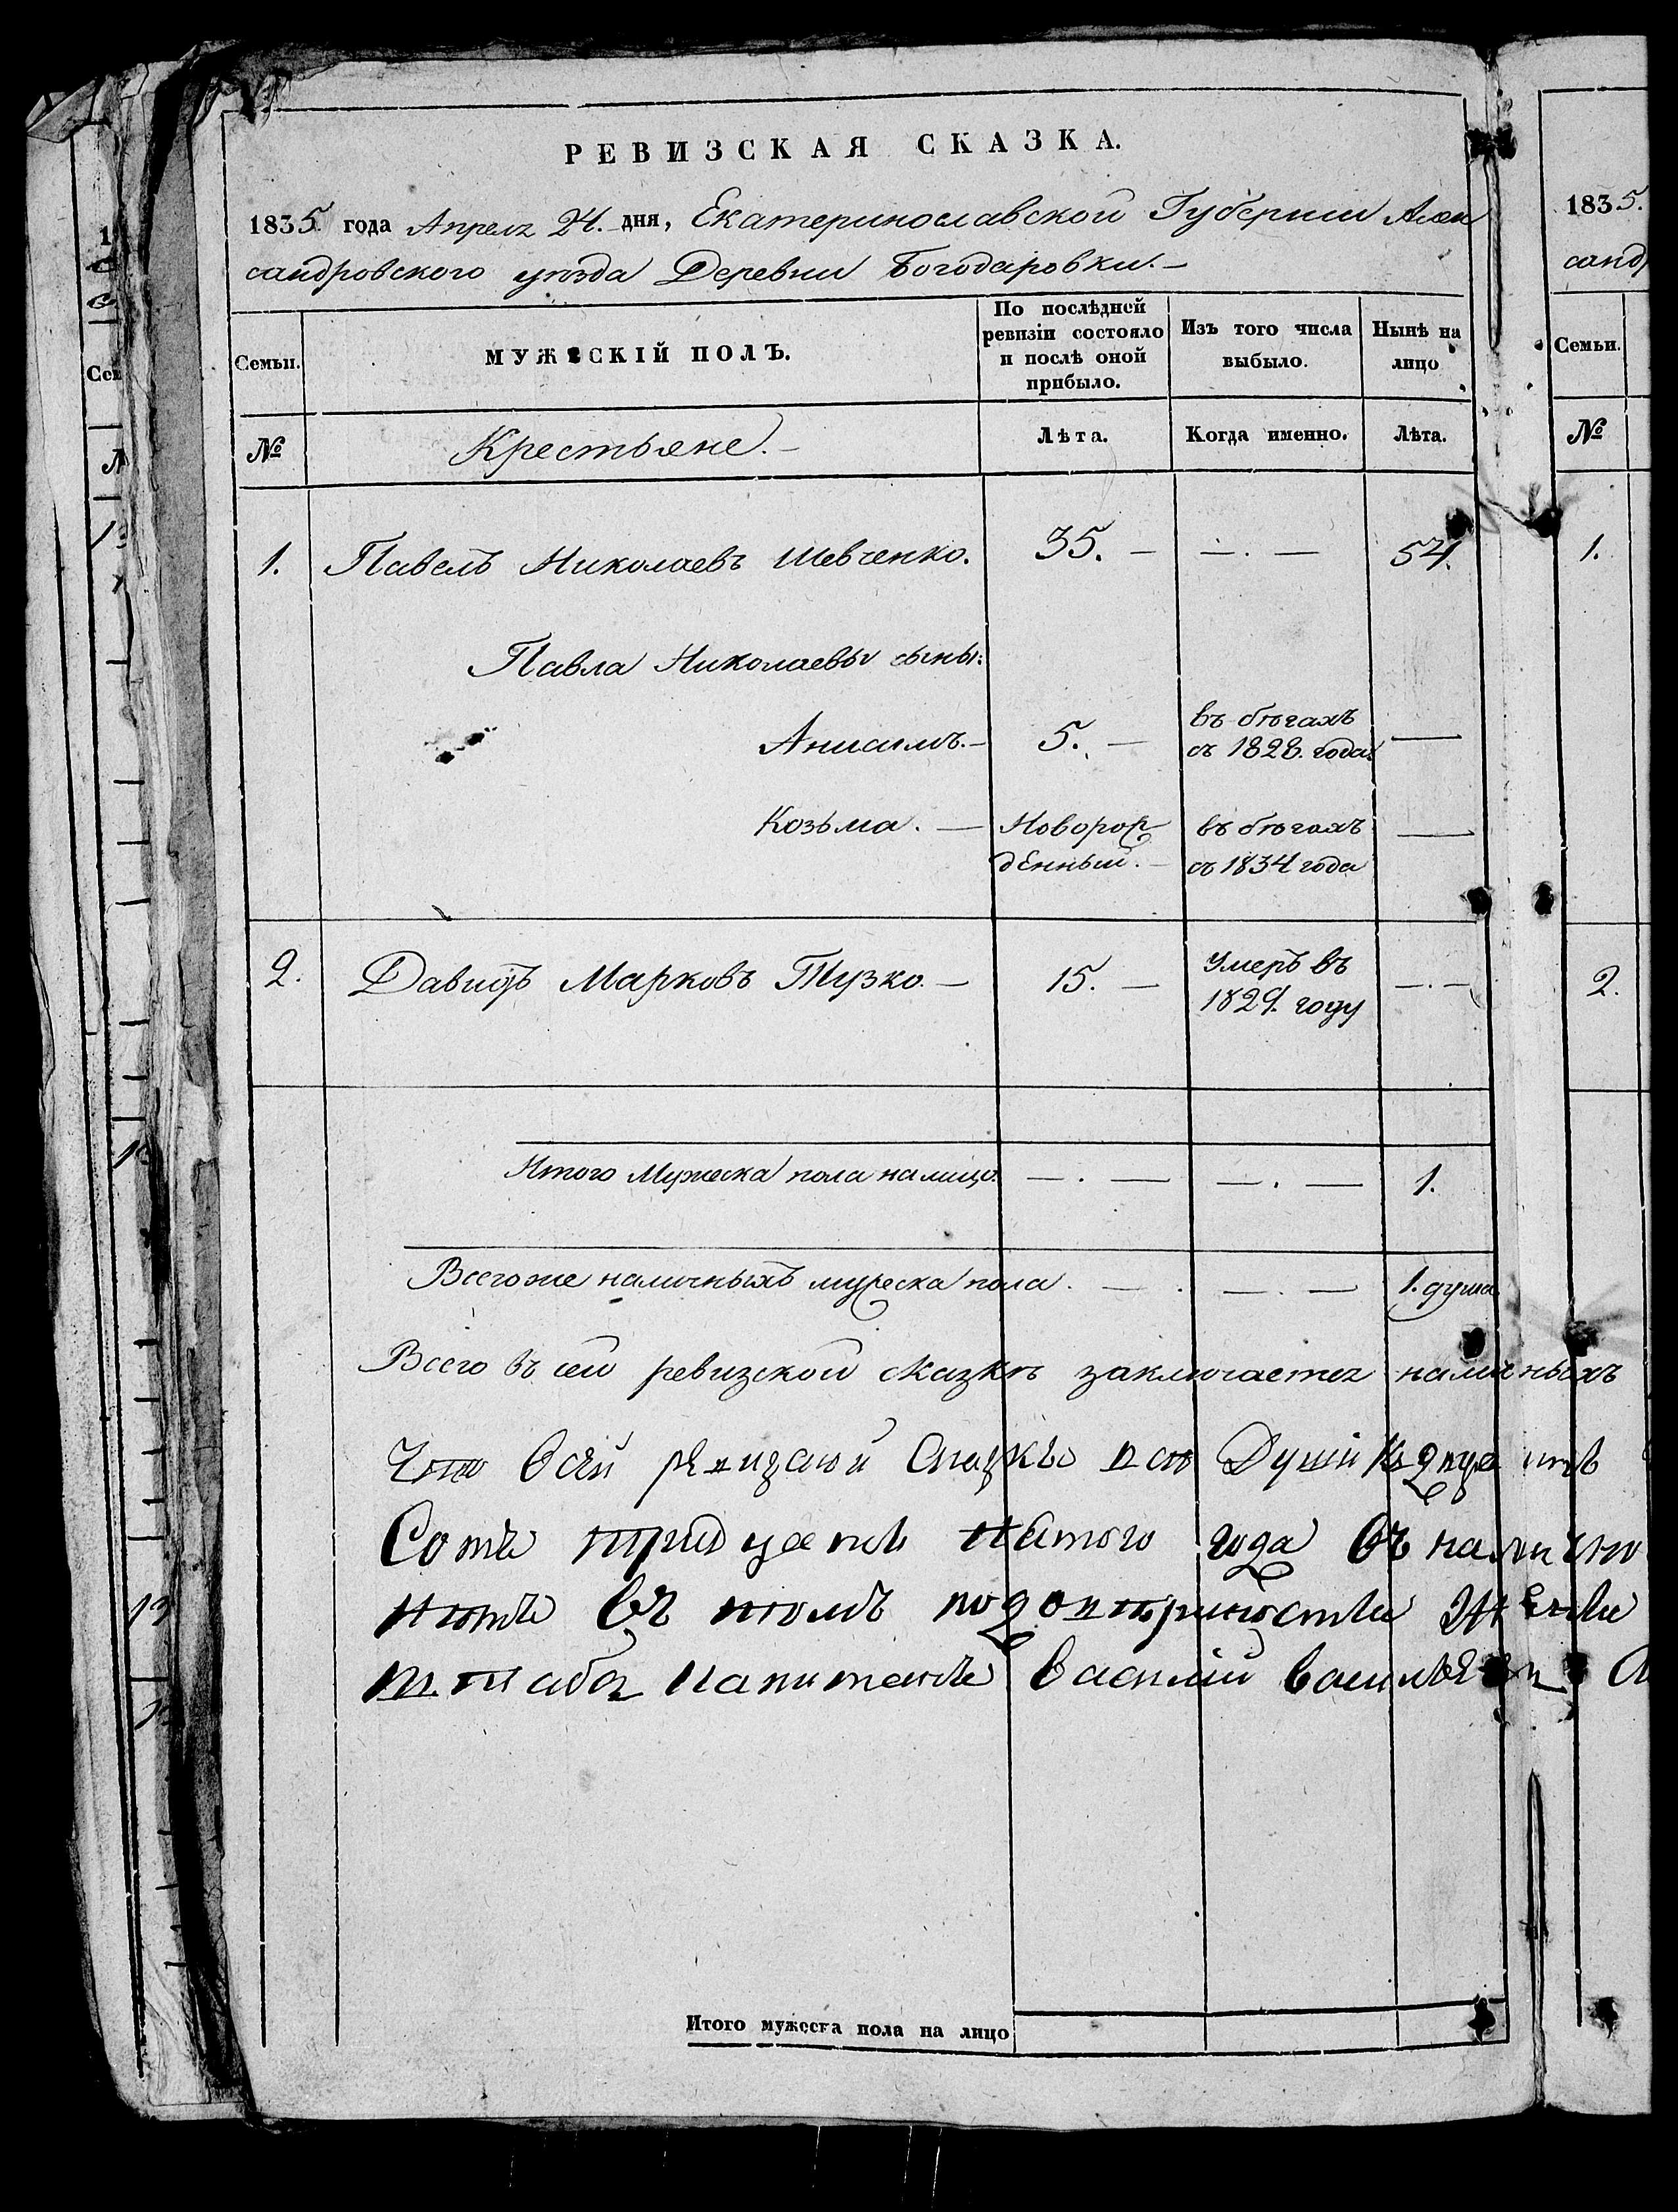 РЕВИЗСКАЯ СКАЗКА.
1835. года Апреля 24. дня, Екатеринославской Губернии Алек
сандровского уѣзда Деревни Богодаровки. —
Семьи. МУЖЕСКІЙ ПОЛЪ. По послѣдней ревизіи состояло и послѣ оной прибыло. Изъ того числа выбыло. Нынѣ на лицо
№ Крестьяне. — Лѣта. Когда именно. Лѣта.
1. Павелъ Николаевъ Шевченко. 35. — — . — 54.
Павла Николаевы сыны:
Анисимъ. — 5. — въ бѣгахъ съ 1828. года —
Козьма. — Новорож денный. — въ бѣгахъ съ 1834 года —
2. Давидъ Марковъ Тузко. — 15. — Умеръ въ 1829. году — . —
Итого Мужеска пола налицо. — . — — . — 1.
Всегоже наличныхъ мужеска пола. — . — . — 1. душа
Всего въ сей ревизской сказкѣ заключается наличныхъ
Что всей ревизской Сказкѣ Души
Сотъ тридцать пятого года въ
въ томъ
штабсъ капитанъ Василій Васильевъ
Итого мужеска пола на лицо
1835.
санд
Семьи.
№
1.
2.